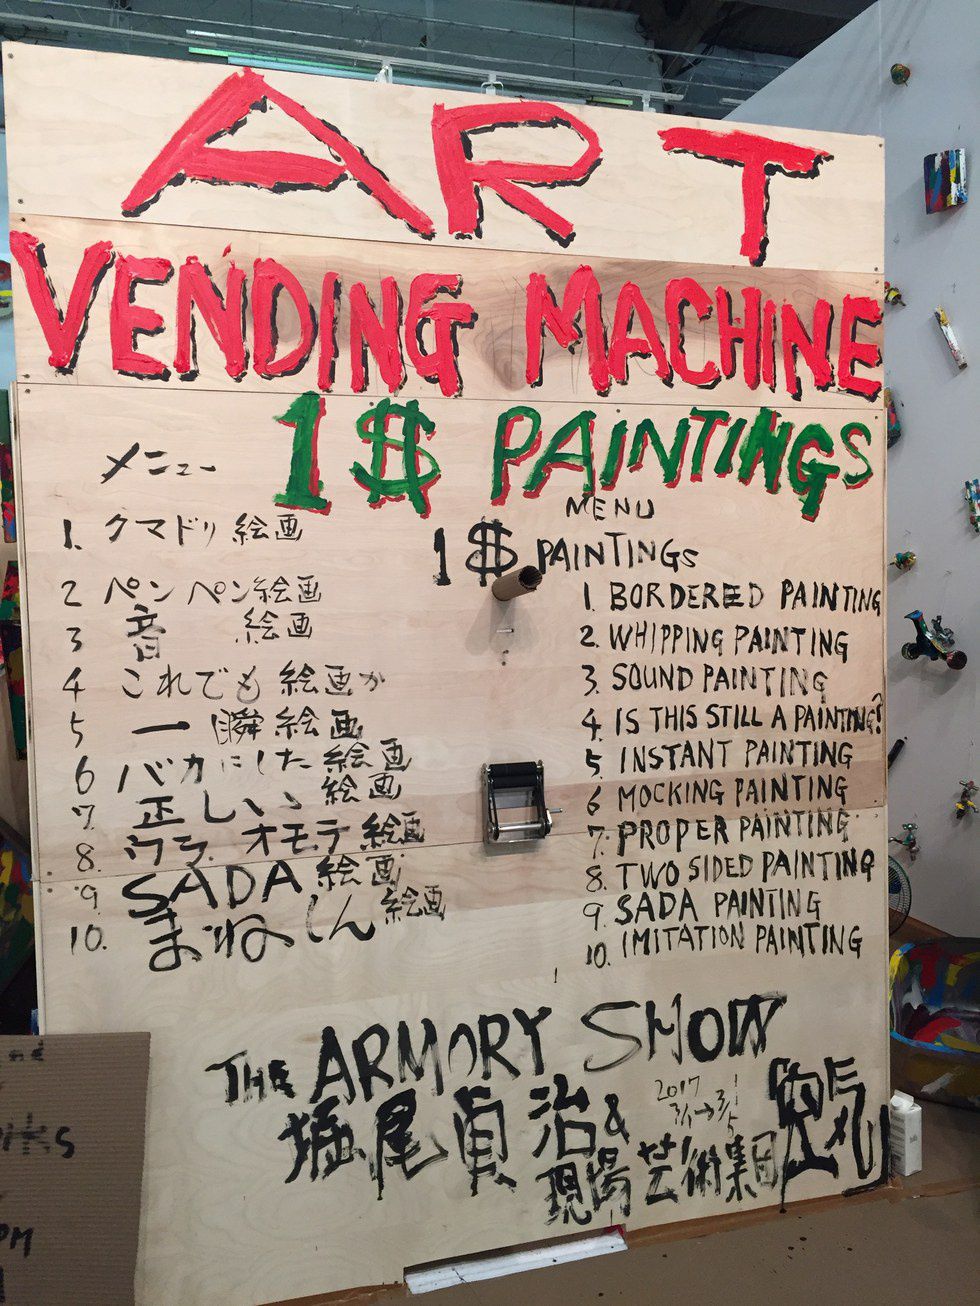 ART
VENDING MACHINE
1$ PAINTINGS
メニュー
1. クマドリ 絵画
2 ペンペン絵画
3 音 絵画
4 これでも絵画か
5 一瞬絵画
6 バカにした絵画
7. 正しい絵画
8. ウラオモテ絵画
9. SADA 絵画
10. まねしん絵画
MENU
1$ PAINTINGS
1. BORDERED PAINTING
2. WHIPPING PAINTING
3. SOUND PAINTING
4. IS THIS STILL A PAINTING?
5. INSTANT PAINTING
6 MOCKING PAINTING
7. PROPER PAINTING
8. TWO SIDED PAINTING
9. SADA PAINTING
10. IMITATION PAINTING
THE ARMORY SHOW
2017
3/1→3/5
堀尾貞治 &
現場芸術集団
空気
PM